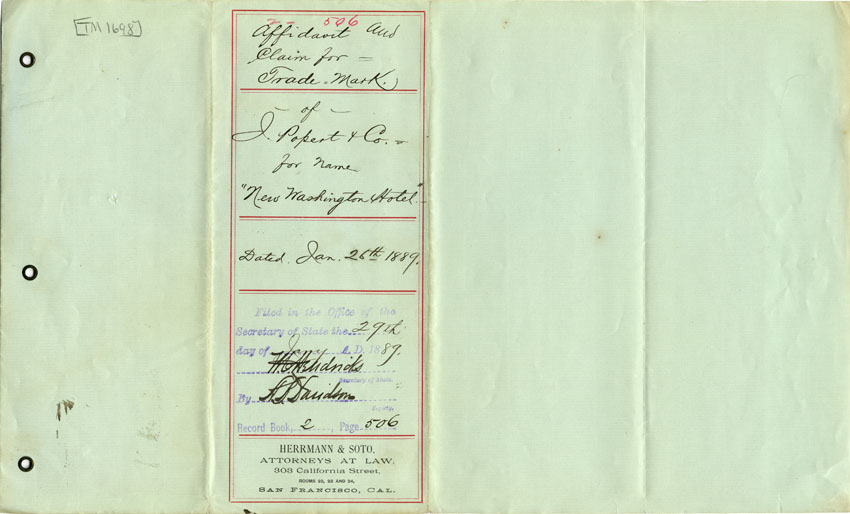 [TM 1698]
506
Affidavit and
Claim for =
Trade-Mark.
- of -
J. Popert & Co. =
for name
"New Washington Hotel"
Dated. Jan. 26th 1889.
Filed in the Office of the
Secretary of State the 29th
day of Jany A.D. 1889.
W.C. Hendricks
Secretary of State.
By Davidson
Deputy.
Record Book, 2, Page 506
HERRMANN & SOTO,
ATTORNEYS AT LAW,
303 California Street,
ROOMS 22, 23 AND 24,
SAN FRANCISCO, CAL.